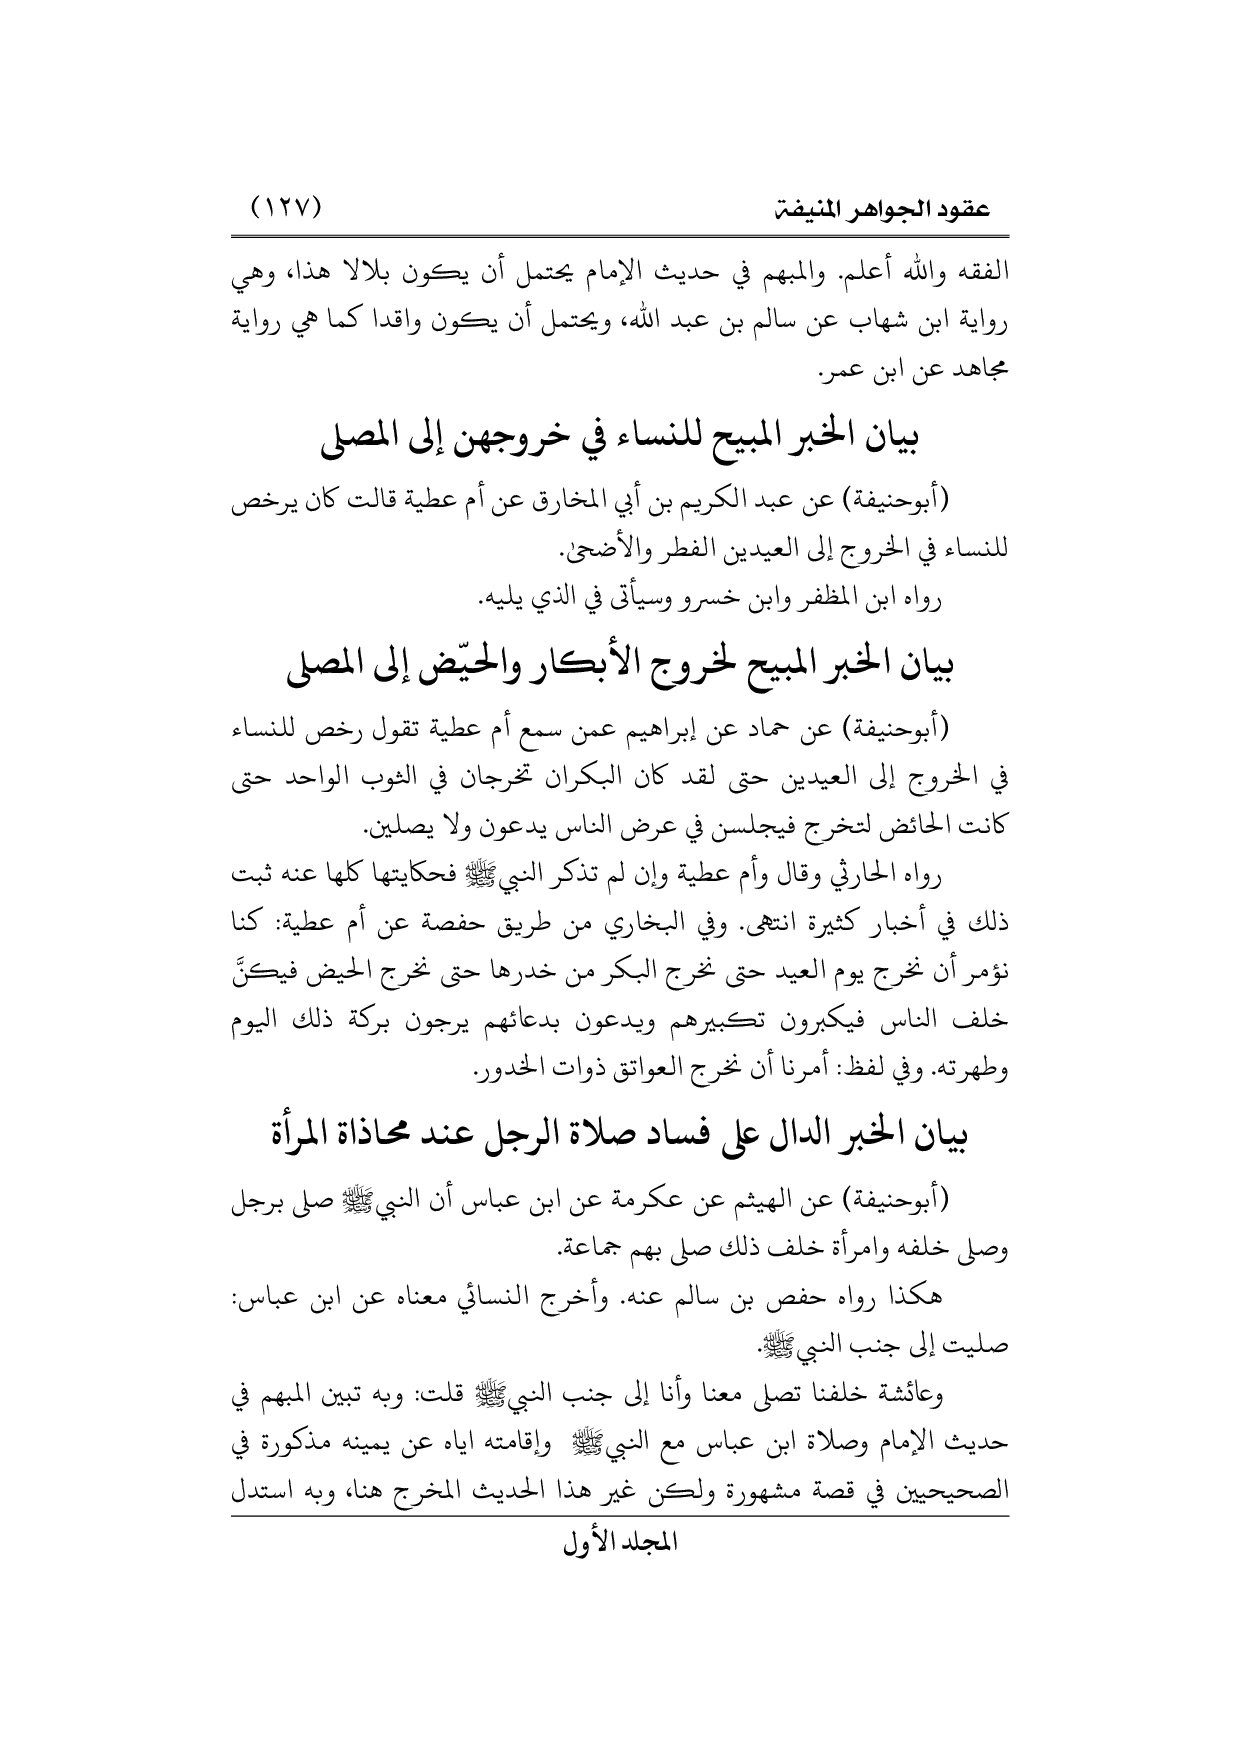 عقود الجواهر المنيفة (١٢٧)
الفقه والله أعلم. والمبهم في حديث الإمام يحتمل أن يكون بلالا هذا، وهي
رواية ابن شهاب عن سالم بن عبد الله، ويحتمل أن يكون واقدا كما هي رواية
مجاهد عن ابن عمر.
بيان الخبر المبيح للنساء في خروجهن إلى المصلى
(أبوحنيفة) عن عبد الكريم بن أبي المخارق عن أم عطية قالت كان يرخص
للنساء في الخروج إلى العيدين الفطر والأضحىٰ.
رواه ابن المظفر وابن خسرو وسيأتى في الذي يليه.
بيان الخبر المبيح لخروج الأبكار والحيّض إلى المصلى
(أبوحنيفة) عن حماد عن إبراهيم عمن سمع أم عطية تقول رخص للنساء
في الخروج إلى العيدين حتى لقد كان البكران تخرجان في الثوب الواحد حتى
كانت الحائض لتخرج فيجلسن في عرض الناس يدعون ولا يصلين.
رواه الحارثي وقال وأم عطية وإن لم تذكر النبيﷺ فحكايتها كلها عنه ثبت
ذلك في أخبار كثيرة انتهى. وفي البخاري من طريق حفصة عن أم عطية: كنا
نؤمر أن نخرج يوم العيد حتى نخرج البكر من خدرها حتى نخرج الحيض فيكنَّ
خلف الناس فيكبرون تكبيرهم ويدعون بدعائهم يرجون بركة ذلك اليوم
وطهرته. وفي لفظ: أمرنا أن نخرج العواتق ذوات الخدور.
بيان الخبر الدال على فساد صلاة الرجل عند محاذاة المرأة
(أبوحنيفة) عن الهيثم عن عكرمة عن ابن عباس أن النبيﷺ صلى برجل
وصلى خلفه وامرأة خلف ذلك صلى بهم جماعة.
هكذا رواه حفص بن سالم عنه. وأخرج النسائي معناه عن ابن عباس:
صليت إلى جنب النبيﷺ.
وعائشة خلفنا تصلى معنا وأنا إلى جنب النبيﷺ قلت: وبه تبين المبهم في
حديث الإمام وصلاة ابن عباس مع النبيﷺ وإقامته اياه عن يمينه مذكورة في
الصحيحيين في قصة مشهورة ولكن غير هذا الحديث المخرج هنا، وبه استدل
المجلد الأول